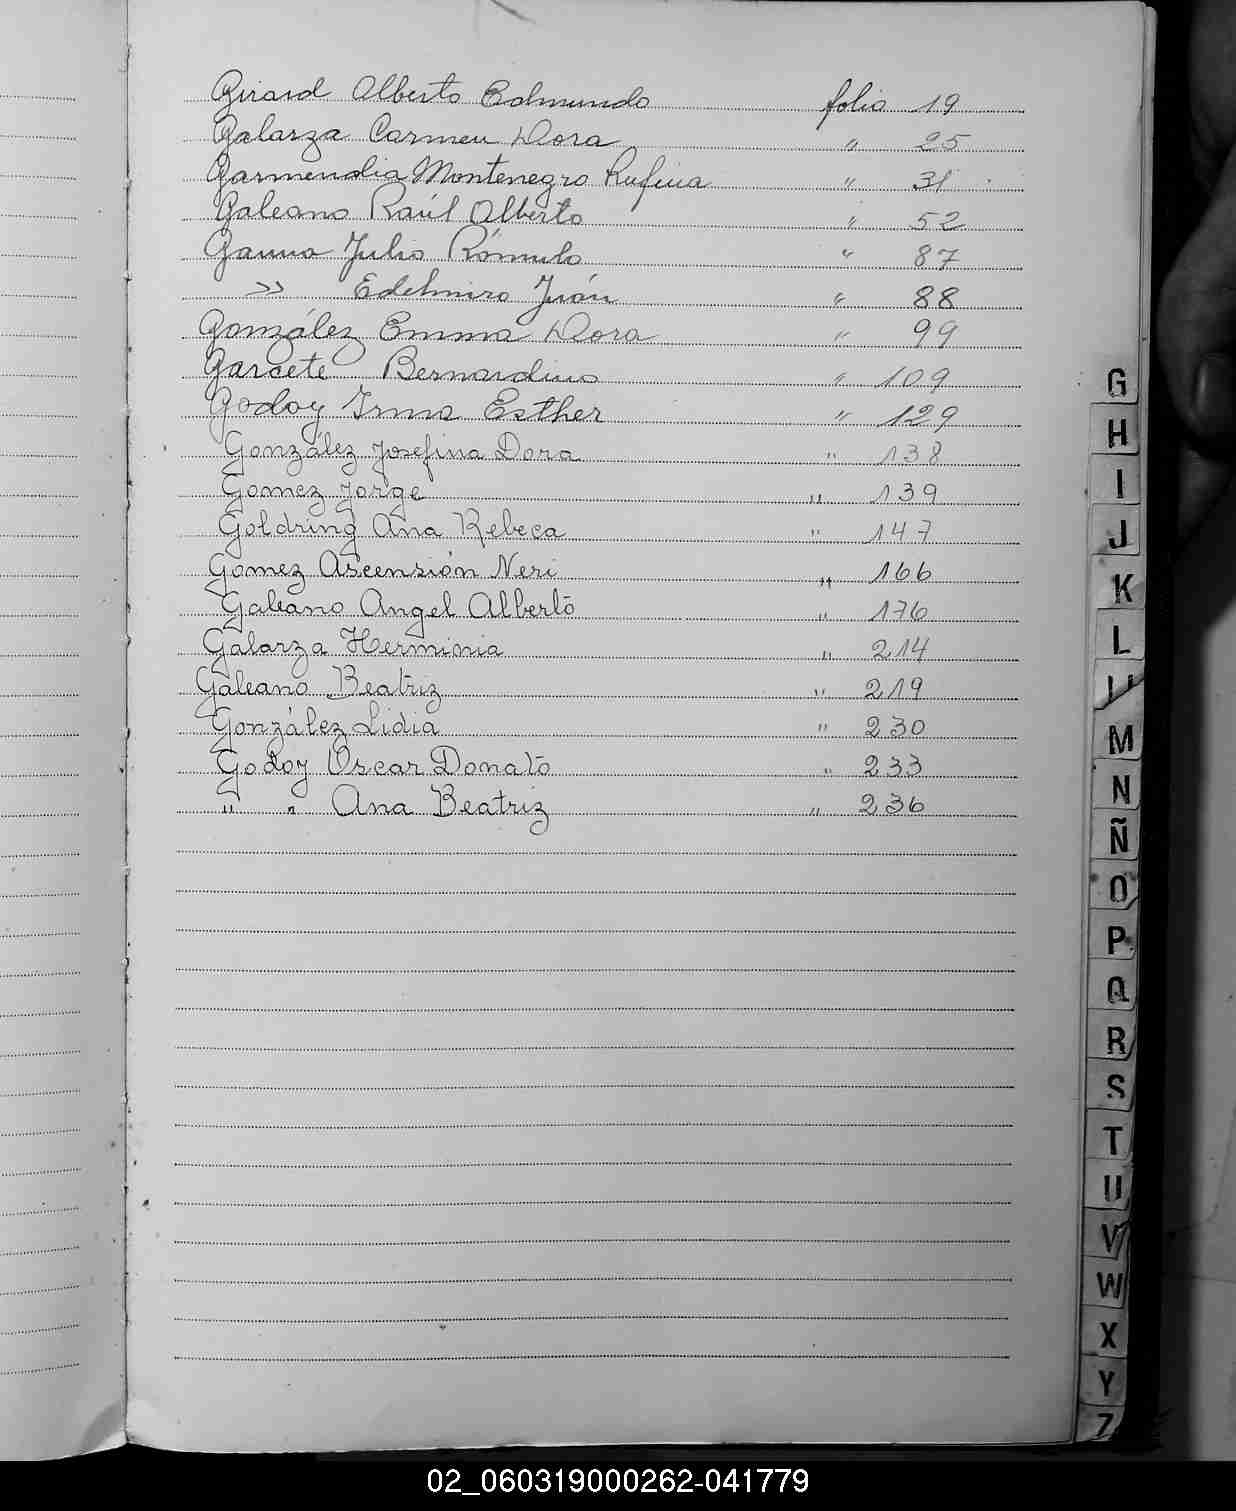 Girard Alberto Edmundo folio 19
Galarza Carmen Dora " 25
Garmendia Montenegro Rufina " 31
Galeano Raúl Alberto " 52
Gauna Julio Rómulo " 87
>> Edelmiro Juán " 88
González Emma Dora " 99
Garcete Bernardino " 109
Godoy Irma Esther " 129
González Josefina Dora " 138
Gomez Jorge " 139
Goldring Ana Rebeca " 147
Gomez Ascensión Neri " 166
Galeano Angel Alberto " 176
Galarza Herminia " 214
Galeano Beatriz " 219
González Lidia " 230
Godoy Oscar Donato " 233
" " Ana Beatriz " 236
G
H
I
J
K
L
M
N
Ñ
O
P
Q
R
S
T
U
V
W
X
Y
Z
02_060319000262-041779